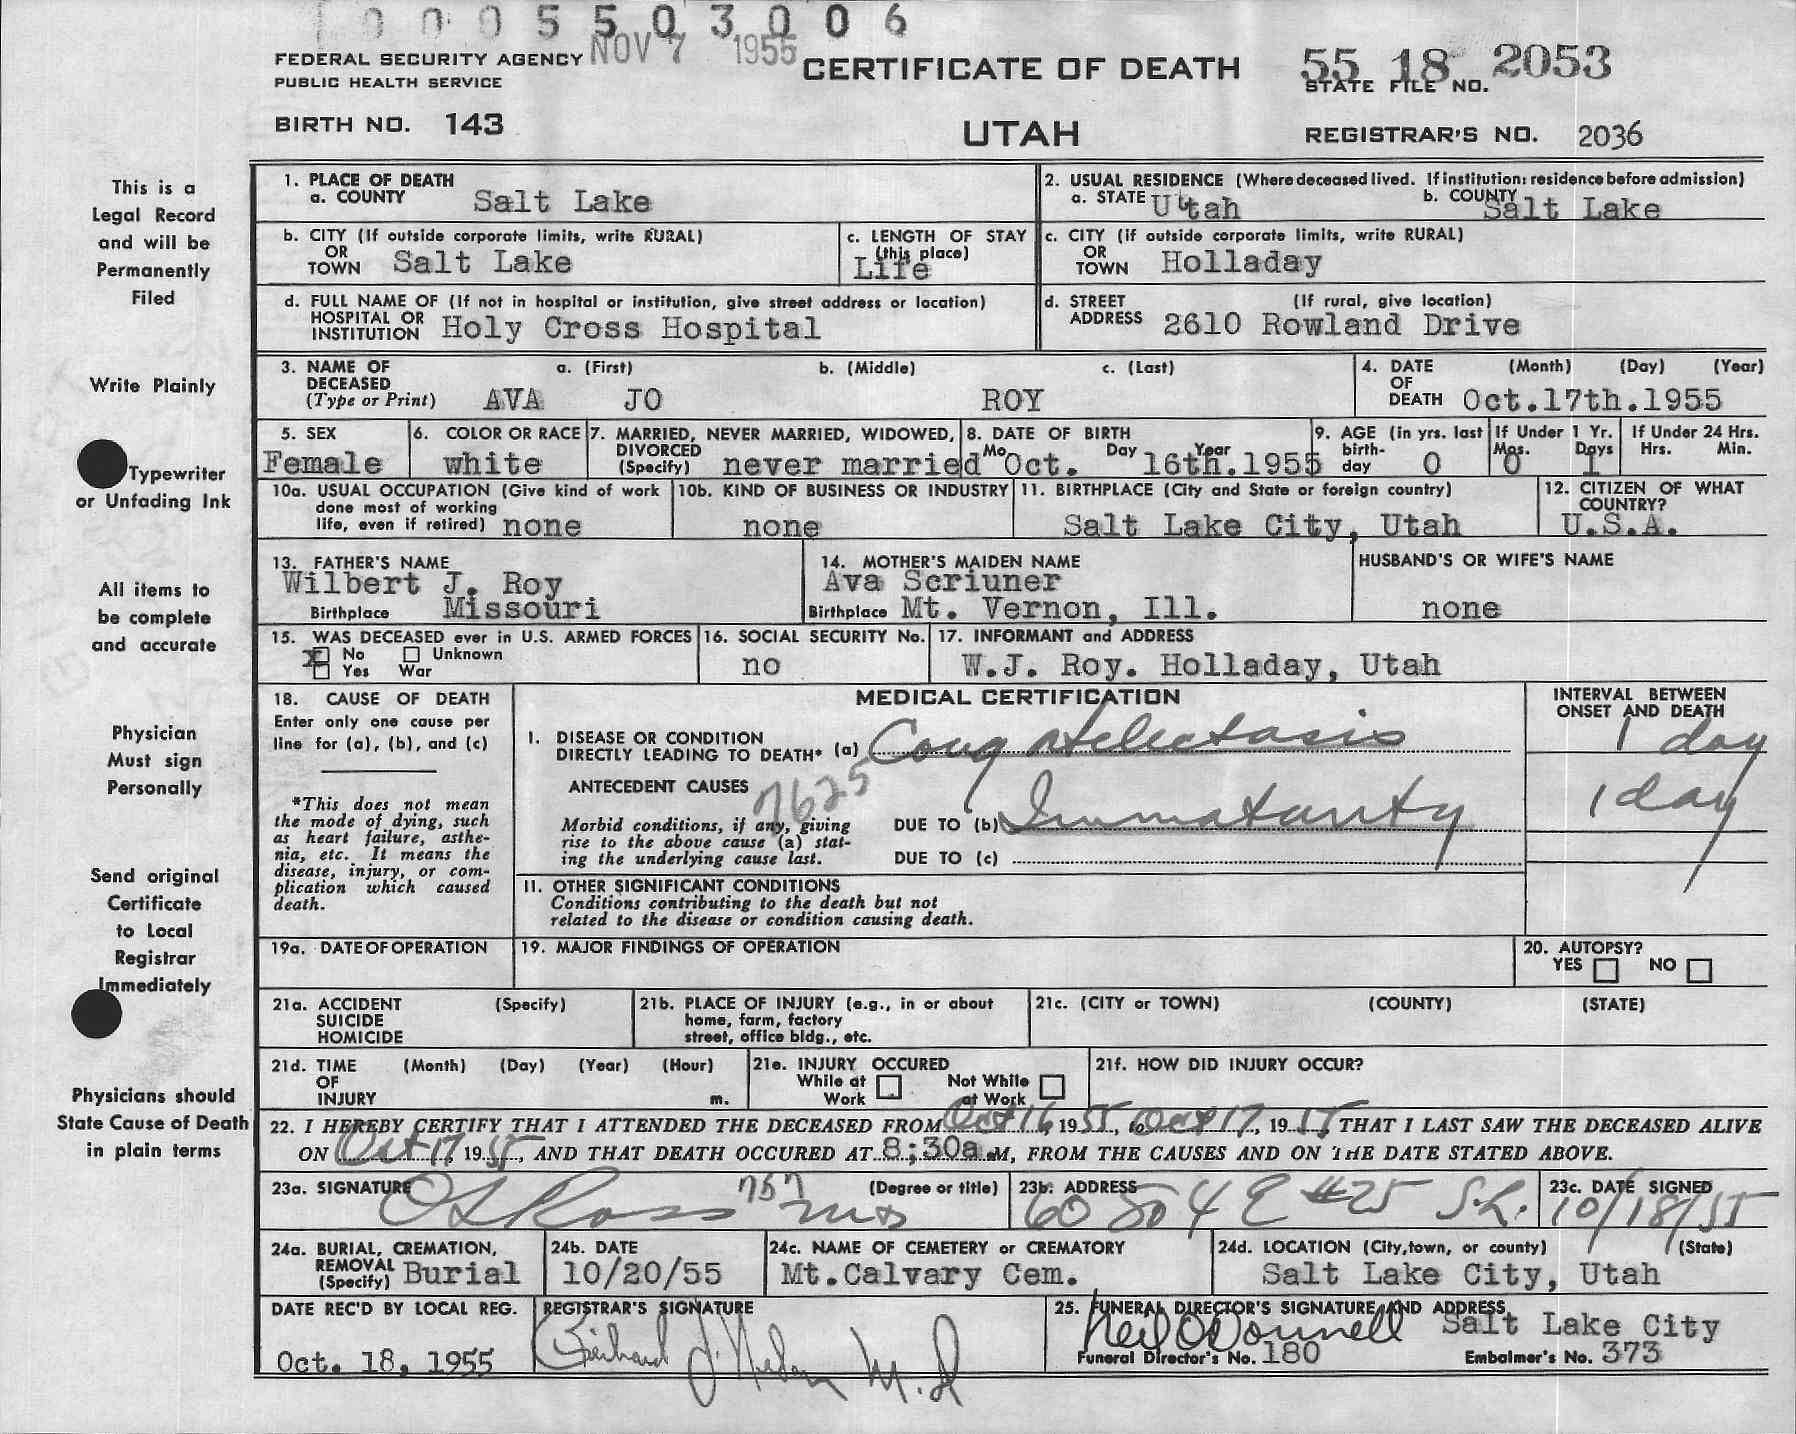 0 0 0 5 5 0 3 0 0 6
NOV 7 1955
FEDERAL SECURITY AGENCY
PUBLIC HEALTH SERVICE
CERTIFICATE OF DEATH
55 18 2053
STATE FILE NO.
BIRTH NO. 143
UTAH
REGISTRAR'S NO. 2036
This is a
Legal Record
and will be
Permanently
Filed
Write Plainly
Typewriter
or Unfading Ink
All items to
be complete
and accurate
Physician
Must sign
Personally
Send original
Certificate
to Local
Registrar
Immediately
Physicians should
State Cause of Death
in plain terms
1. PLACE OF DEATH
a. COUNTY Salt Lake
2. USUAL RESIDENCE (Where deceased lived. If institution: residence before admission)
a. STATE Utah b. COUNTY Salt Lake
b. CITY (If outside corporate limits, write RURAL)
OR
TOWN Salt Lake
c. LENGTH OF STAY
(this place)
Life
c. CITY (if outside corporate limits, write RURAL)
OR
TOWN Holladay
d. FULL NAME OF (If not in hospital or institution, give street address or location)
HOSPITAL OR
INSTITUTION Holy Cross Hospital
d. STREET (If rural, give location)
ADDRESS 2610 Rowland Drive
3. NAME OF a. (First) b. (Middle) c. (Last)
DECEASED
(Type or Print) AVA JO ROY
4. DATE (Month) (Day) (Year)
OF
DEATH Oct.17th.1955
5. SEX
Female
6. COLOR OR RACE
white
7. MARRIED, NEVER MARRIED, WIDOWED,
DIVORCED
(Specify) never married
8. DATE OF BIRTH
Mo Day Year
Oct. 16th.1955
9. AGE (in yrs. last
birth-
day 0
If Under 1 Yr.
Mos. Days
0 1
If Under 24 Hrs.
Hrs. Min.
10a. USUAL OCCUPATION (Give kind of work
done most of working
life, even if retired) none
10b. KIND OF BUSINESS OR INDUSTRY
none
11. BIRTHPLACE (City and State or foreign country)
Salt Lake City, Utah
12. CITIZEN OF WHAT
COUNTRY?
U.S.A.
13. FATHER'S NAME
Wilbert J. Roy
Birthplace Missouri
14. MOTHER'S MAIDEN NAME
Ava Scriuner
Birthplace Mt. Vernon, Ill.
HUSBAND'S OR WIFE'S NAME
none
15. WAS DECEASED ever in U.S. ARMED FORCES
X No Unknown
Yes War
16. SOCIAL SECURITY No.
no
17. INFORMANT and ADDRESS
W.J. Roy. Holladay, Utah
18. CAUSE OF DEATH
Enter only one cause per
line for (a), (b), and (c)
*This does not mean
the mode of dying, such
as heart failure, asthe-
nia, etc. It means the
disease, injury, or com-
plication which caused
death.
MEDICAL CERTIFICATION
INTERVAL BETWEEN
ONSET AND DEATH
I. DISEASE OR CONDITION
DIRECTLY LEADING TO DEATH* (a) Cong atelectasis 1 day
ANTECEDENT CAUSES 7625
Morbid conditions, if any, giving
rise to the above cause (a) stat-
ing the underlying cause last.
DUE TO (b) Immaturity 1 day
DUE TO (c)
II. OTHER SIGNIFICANT CONDITIONS
Conditions contributing to the death but not
related to the disease or condition causing death.
19a. DATE OF OPERATION
19. MAJOR FINDINGS OF OPERATION
20. AUTOPSY?
YES NO
21a. ACCIDENT (Specify)
SUICIDE
HOMICIDE
21b. PLACE OF INJURY (e.g., in or about
home, farm, factory
street, office bldg., etc.
21c. (CITY or TOWN) (COUNTY) (STATE)
21d. TIME (Month) (Day) (Year) (Hour)
OF
INJURY m.
21e. INJURY OCCURED
While at Not While
Work at Work
21f. HOW DID INJURY OCCUR?
22. I HEREBY CERTIFY THAT I ATTENDED THE DECEASED FROM Oct 16, 1955, to Oct 17, 1955, THAT I LAST SAW THE DECEASED ALIVE
ON Oct 17, 1955, AND THAT DEATH OCCURED AT 8:30a M, FROM THE CAUSES AND ON THE DATE STATED ABOVE.
23a. SIGNATURE 757 (Degree or title)
Ross MD
23b. ADDRESS
60 So 4 E #25 S.L.
23c. DATE SIGNED
10/18/55
24a. BURIAL, CREMATION,
REMOVAL
(Specify) Burial
24b. DATE
10/20/55
24c. NAME OF CEMETERY or CREMATORY
Mt.Calvary Cem.
24d. LOCATION (City,town, or county) (State)
Salt Lake City, Utah
DATE REC'D BY LOCAL REG.
Oct. 18, 1955
REGISTRAR'S SIGNATURE
M.D
25. FUNERAL DIRECTOR'S SIGNATURE AND ADDRESS
Neil O'Donnell Salt Lake City
Funeral Director's No. 180 Embalmer's No. 373